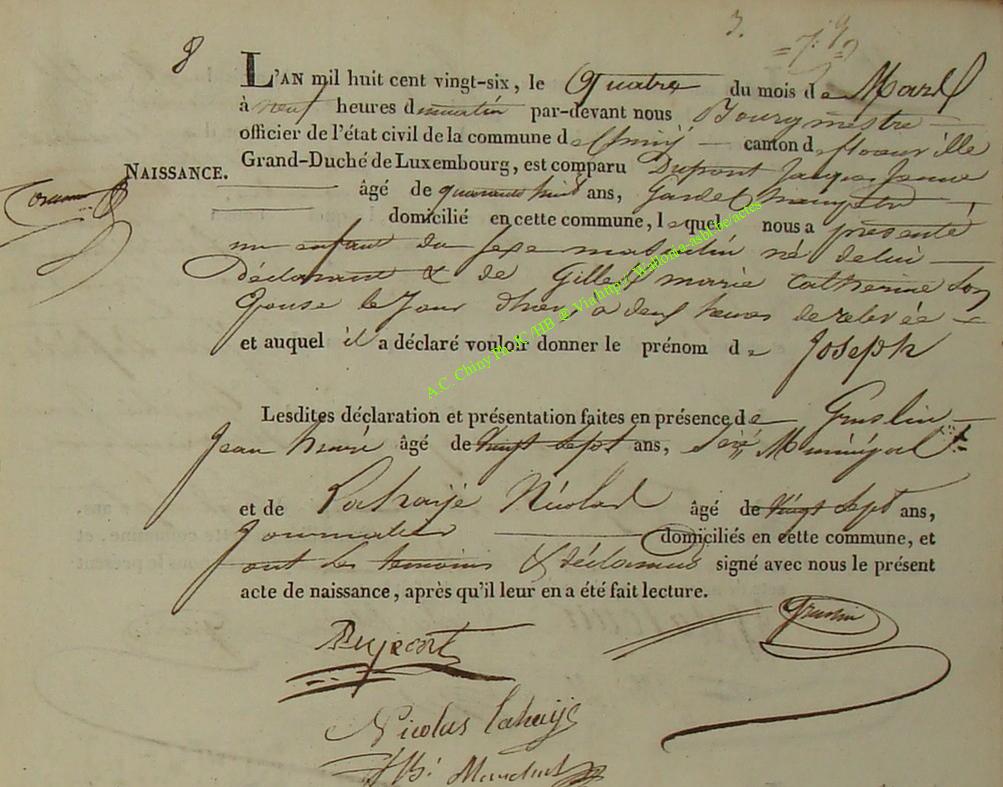 8
L'AN mil huit cent vingt-six, le Quatre du mois de Mars
à neuf heures du matin par-devant nous Bourgmestre
officier de l'état civil de la commune de Chiny canton de florenville
NAISSANCE.
Grand-Duché de Luxembourg, est comparu Dupont Jacques
âgé de quarante huit ans, Garde Champetre
domicilié en cette commune, lequel nous a présenté
un enfant du sexe masculin né de lui
déclarant & de Gillet marie Catherine son
Epouse le jour d'hier a deux heures de relevée
et auquel il a déclaré vouloir donner le prénom de Joseph
Lesdites déclaration et présentation faites en présence de
Jean âgé de vingt sept ans,
et de Lahaÿe Nicolas âgé de vingt sept ans,
Journalier domiciliés en cette commune, et
ont les temoins & déclarant signé avec nous le présent
acte de naissance, après qu'il leur en a été fait lecture.
Dupont
Nicolas Lahaÿe
A.C. Chiny Ph JC/HB @ Via http://Wallonia-asbl.be/actes